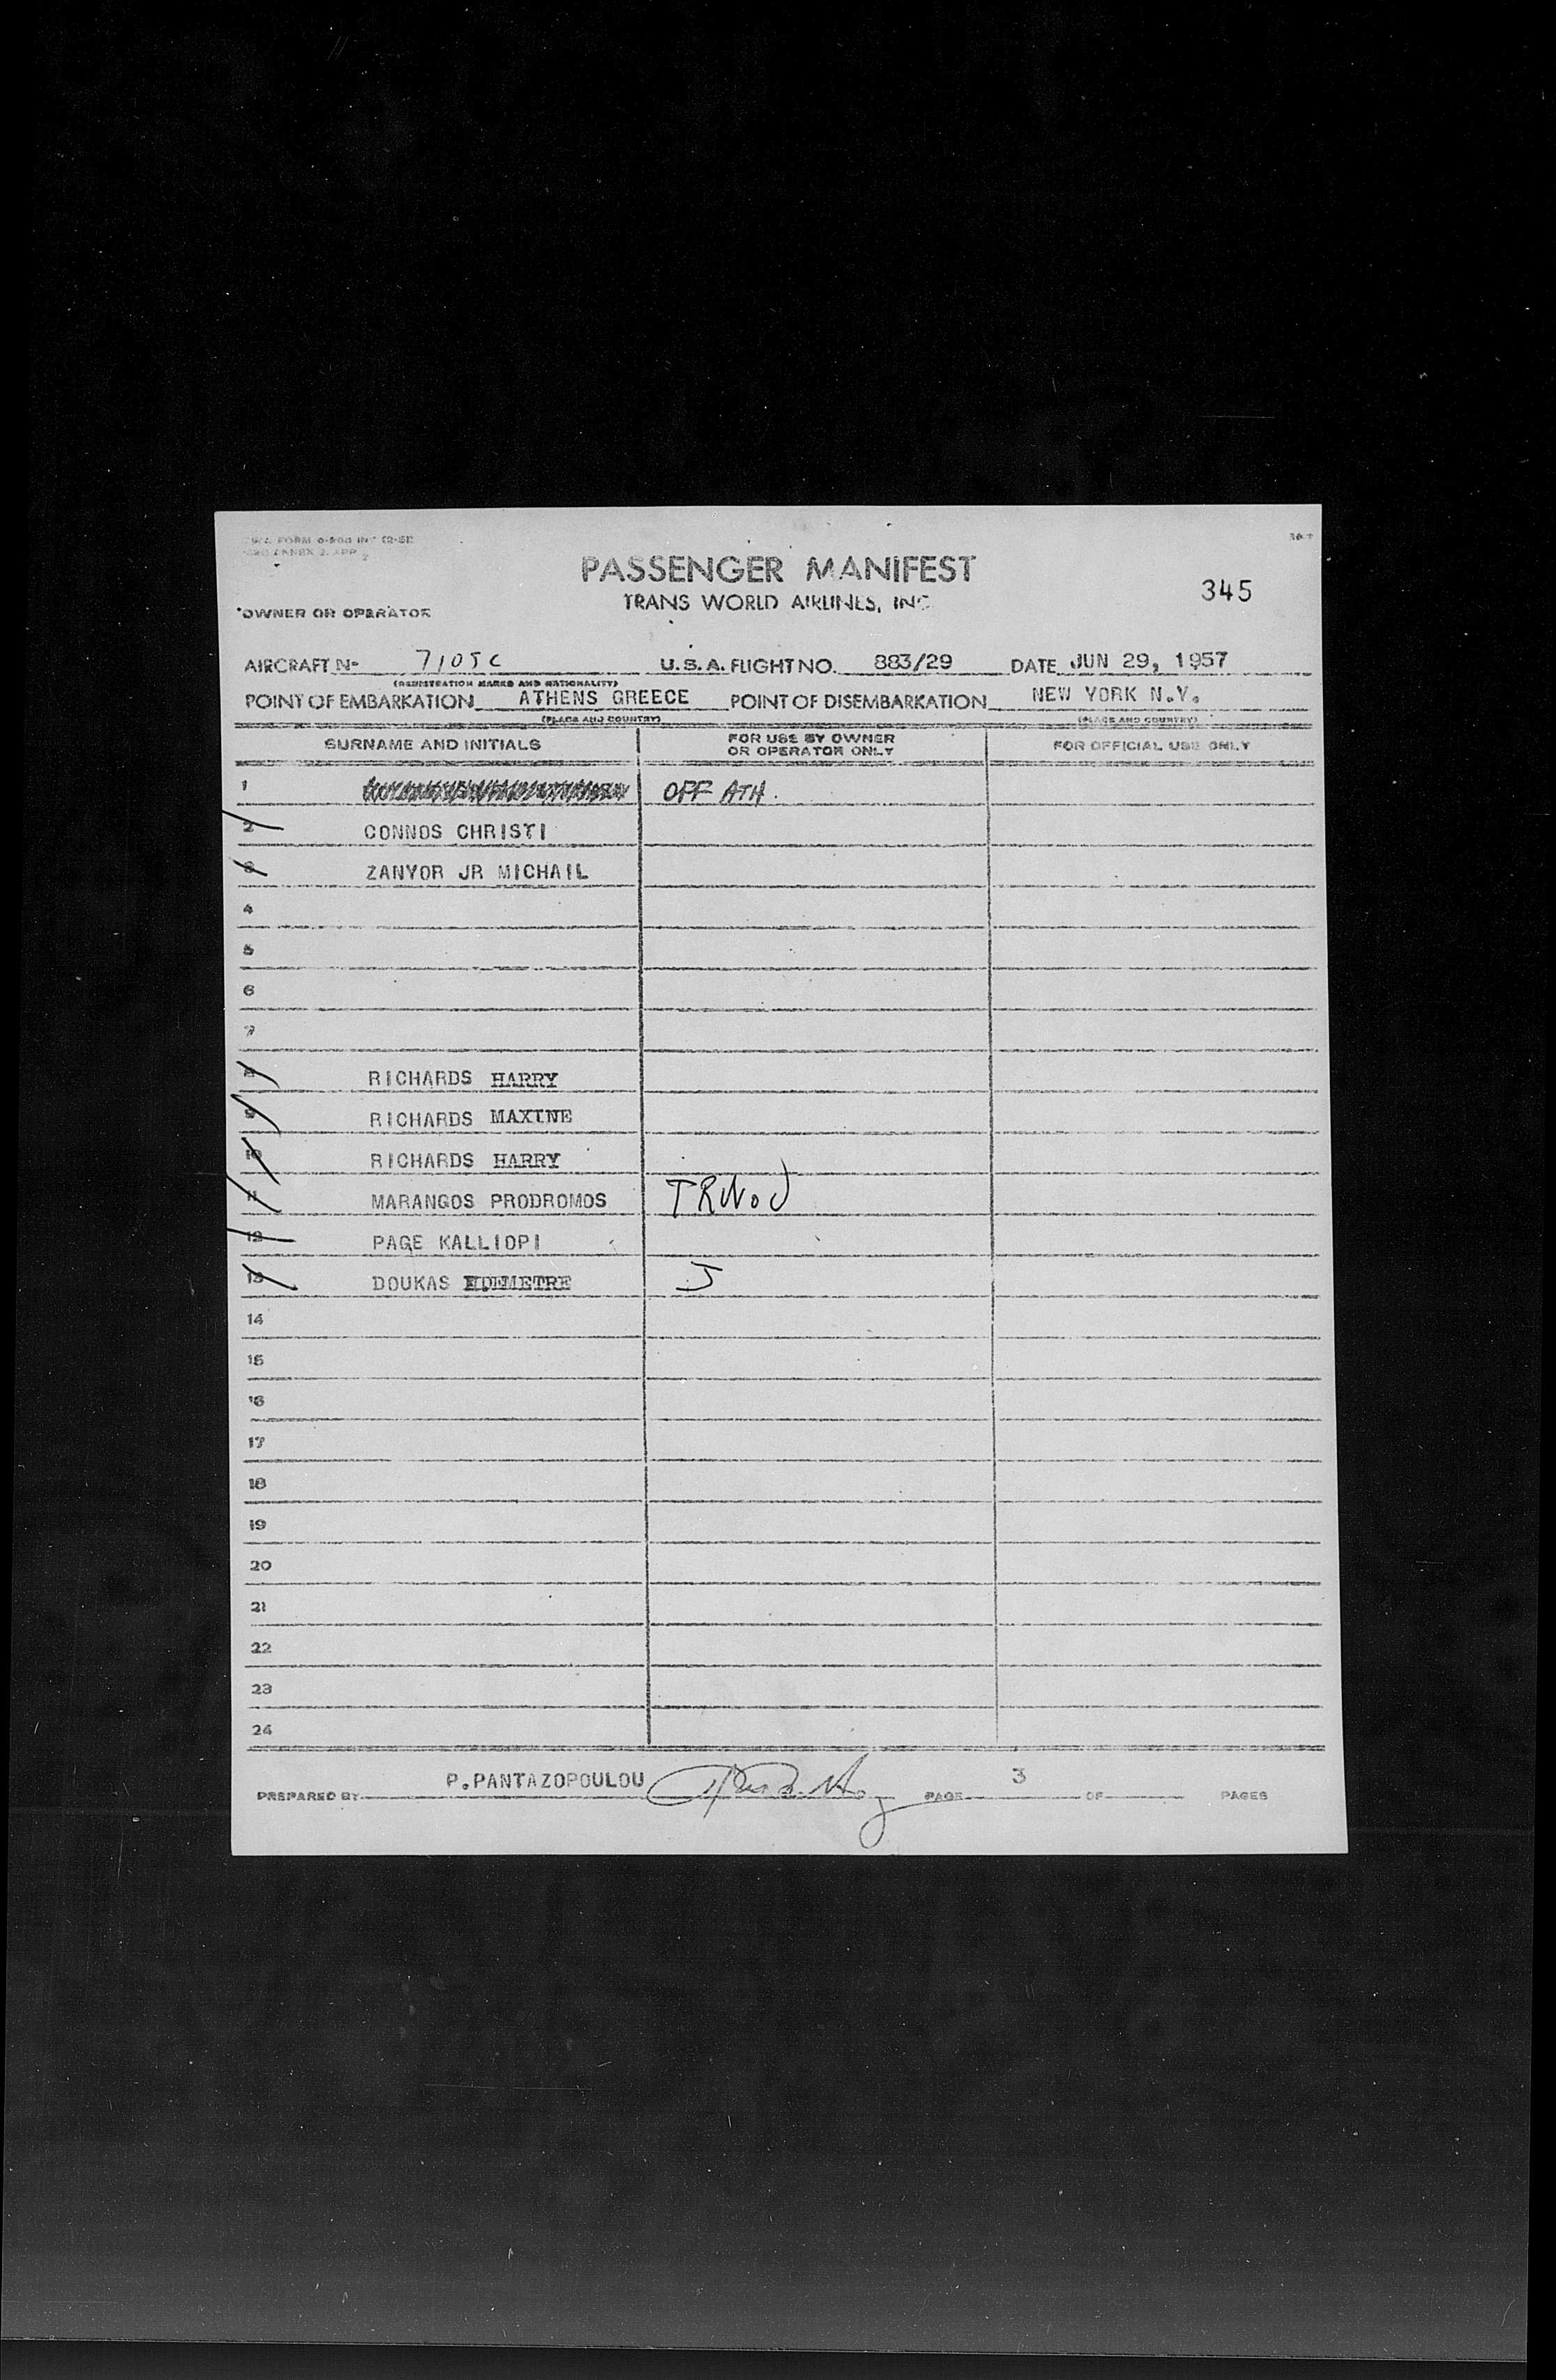 PASSENGER MANIFEST
345
TRANS WORLD AIRLINES, INC
OWNER OR OPERATOR
AIRCRAFT N- 7105C U.S.A. FLIGHT NO. 883/29 DATE JUN 29, 1957
(REGISTRATION MARKS AND NATIONALITY)
POINT OF EMBARKATION ATHENS GREECE POINT OF DISEMBARKATION NEW YORK N.Y.
(PLACE AND COUNTRY) (PLACE AND COUNTRY)
SURNAME AND INITIALS FOR USE BY OWNER OR OPERATOR ONLY FOR OFFICIAL USE ONLY
1 OFF ATH.
2 CONNOS CHRISTI
3 ZANYOR JR MICHAIL
4
5
6
7
8 RICHARDS HARRY
9 RICHARDS MAXINE
10 RICHARDS HARRY
11 MARANGOS PRODROMOS
12 PAGE KALLIOPI
13 DOUKAS J
14
15
16
17
18
19
20
21
22
23
24
PREPARED BY P.PANTAZOPOULOU PAGE 3 OF PAGES